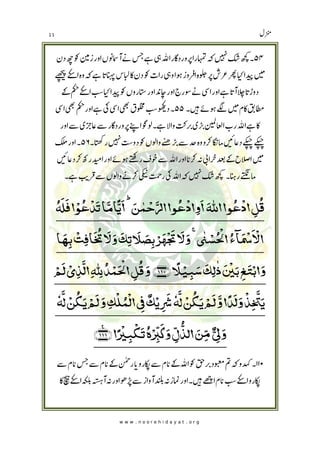 منزل
۱۱
۵۴۔ کچھ شک نہیں کہ تمہارا پروردگار اللہ ہی ہے جس نے آسمانوں اور زمین کو چھ دن
میں پیدا کیا پھر عرش پر جلوہ افروز ہوا وہی رات کو دن کا لباس پہناتا ہے کہ وہ اسکے پیچھے
دوڑتا چلا آتا ہے اور اسی نے سورج اور چاند اور ستاروں کو پیدا کیا سب اسکے حکم کے
مطابق کام میں لگے ہوئے ہیں۔ دیکھو سب مخلوق بھی اسی کی ہے اور حکم بھی اسی
کا ہے اللہ رب العالمین بڑی برکت والا ہے۔ ۵۵۔ لوگو اپنے پروردگار سے عاجزی سے اور
چپکے چپکے دعائیں مانگا کرو وہ حد سے بڑھنے والوں کو دوست نہیں رکھتا۔ ۵۶۔ اور ملک
میں اصلاح کے بعد خرابی نہ کرنا اور اللہ سے خوف رکھتے ہوئے اور امید رکھ کر دعائیں
مانگتے رہنا۔ کچھ شک نہیں کہ اللہ کی رحمت نیکی کرنے والوں سے قریب ہے۔
قُلِ ادْعُوا اللّٰهَ اَوِ ادْعُوا الرَّحْمٰنَ ؕ اَيًّا مَّا تَدْعُوْا فَلَهُ
الْاَسْمَآءُ الْحُسْنٰى ۚ وَلَا تَجْهَرْ بِصَلَاتِكَ وَلَا تُخَافِتْ بِهَا
وَابْتَغِ بَيْنَ ذٰلِكَ سَبِيْلًا ۝۱۱۰ وَقُلِ الْحَمْدُ لِلّٰهِ الَّذِيْ لَمْ
يَتَّخِذْ وَلَدًا وَّلَمْ يَكُنْ لَّهٗ شَرِيْكٌ فِي الْمُلْكِ وَلَمْ يَكُنْ لَّهٗ
وَلِيٌّ مِّنَ الذُّلِّ وَكَبِّرْهُ تَكْبِيْرًا ۝۱۱۱
۱۱۰۔ کہدو کہ تم معبود برحق کو اللہ کے نام سے پکارو یا رحمٰن کے نام سے جس نام سے
پکارو اسکے سب نام اچھے ہیں۔ اور نماز نہ بلند آواز سے پڑھو اور نہ آہستہ بلکہ اسکا بیچ کا
www.noorehidayat.org